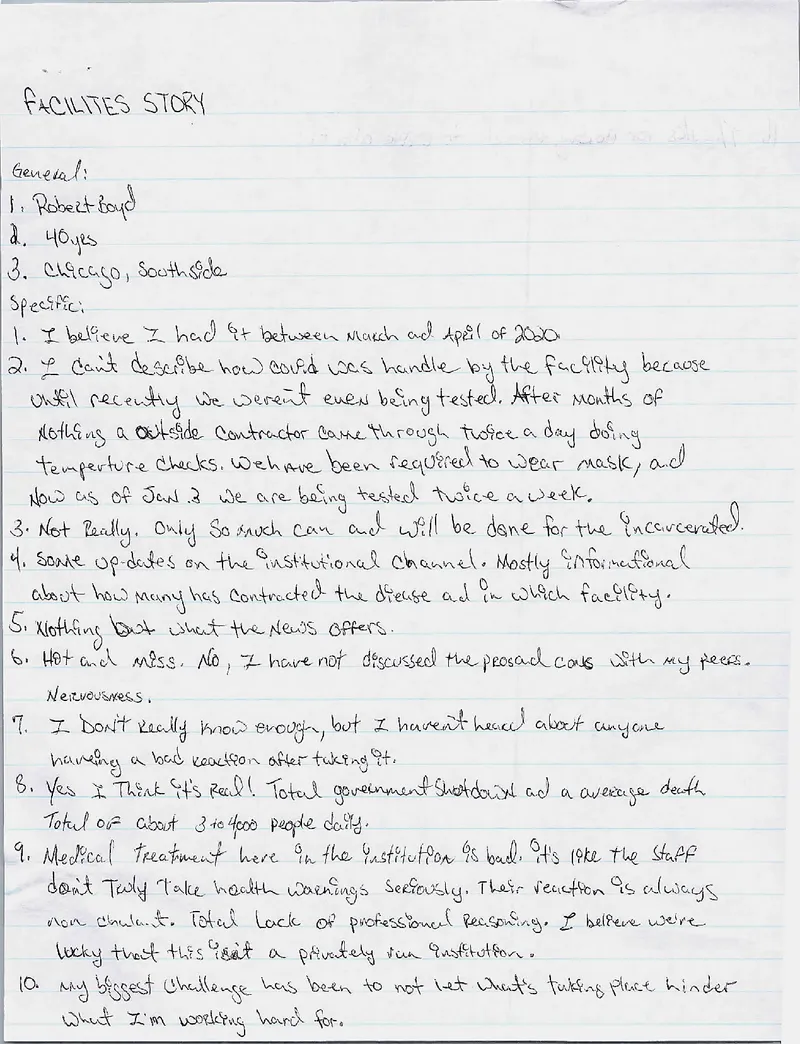 FACILITES STORY
General:
1. Robert Boyd
2. 40yes
3. Chicago, Southside
Specific:
1. I believe I had it between March ad April of 2020.
2. I can't describe how covid was handle by the facility because
until recently we weren't even being tested. After months of
nothing a outside contractor came through twice a day doing
temperture checks. We have been required to wear mask, and
now as of Jan. 3 we are being tested twice a week.
3. Not Really. Only so much can and will be done for the incarcerated.
4. Some up-dates on the institutional channel. Mostly informational
about how many has contracted the diease ad in which facility.
5. Nothing but what the News offers.
6. Hot and miss. No, I have not discussed the pros ad cons with my peers.
Nervousness.
7. I Don't Really know enough, but I haven't heard about anyone
having a bad reaction after taking it.
8. Yes I Think it's Real! Total government shotdown ad a average death
Total of about 3 to 4000 people daily.
9. Medical Treatment here in the institution is bad. it's like the staff
don't Truly Take health warnings seriously. Their reaction is always
non chalant. Total Lack of professional Reasoning. I believe we're
lucky that this isn't a privately run institution.
10. My biggest challenge has been to not let what's taking place hinder
what I'm working hard for.